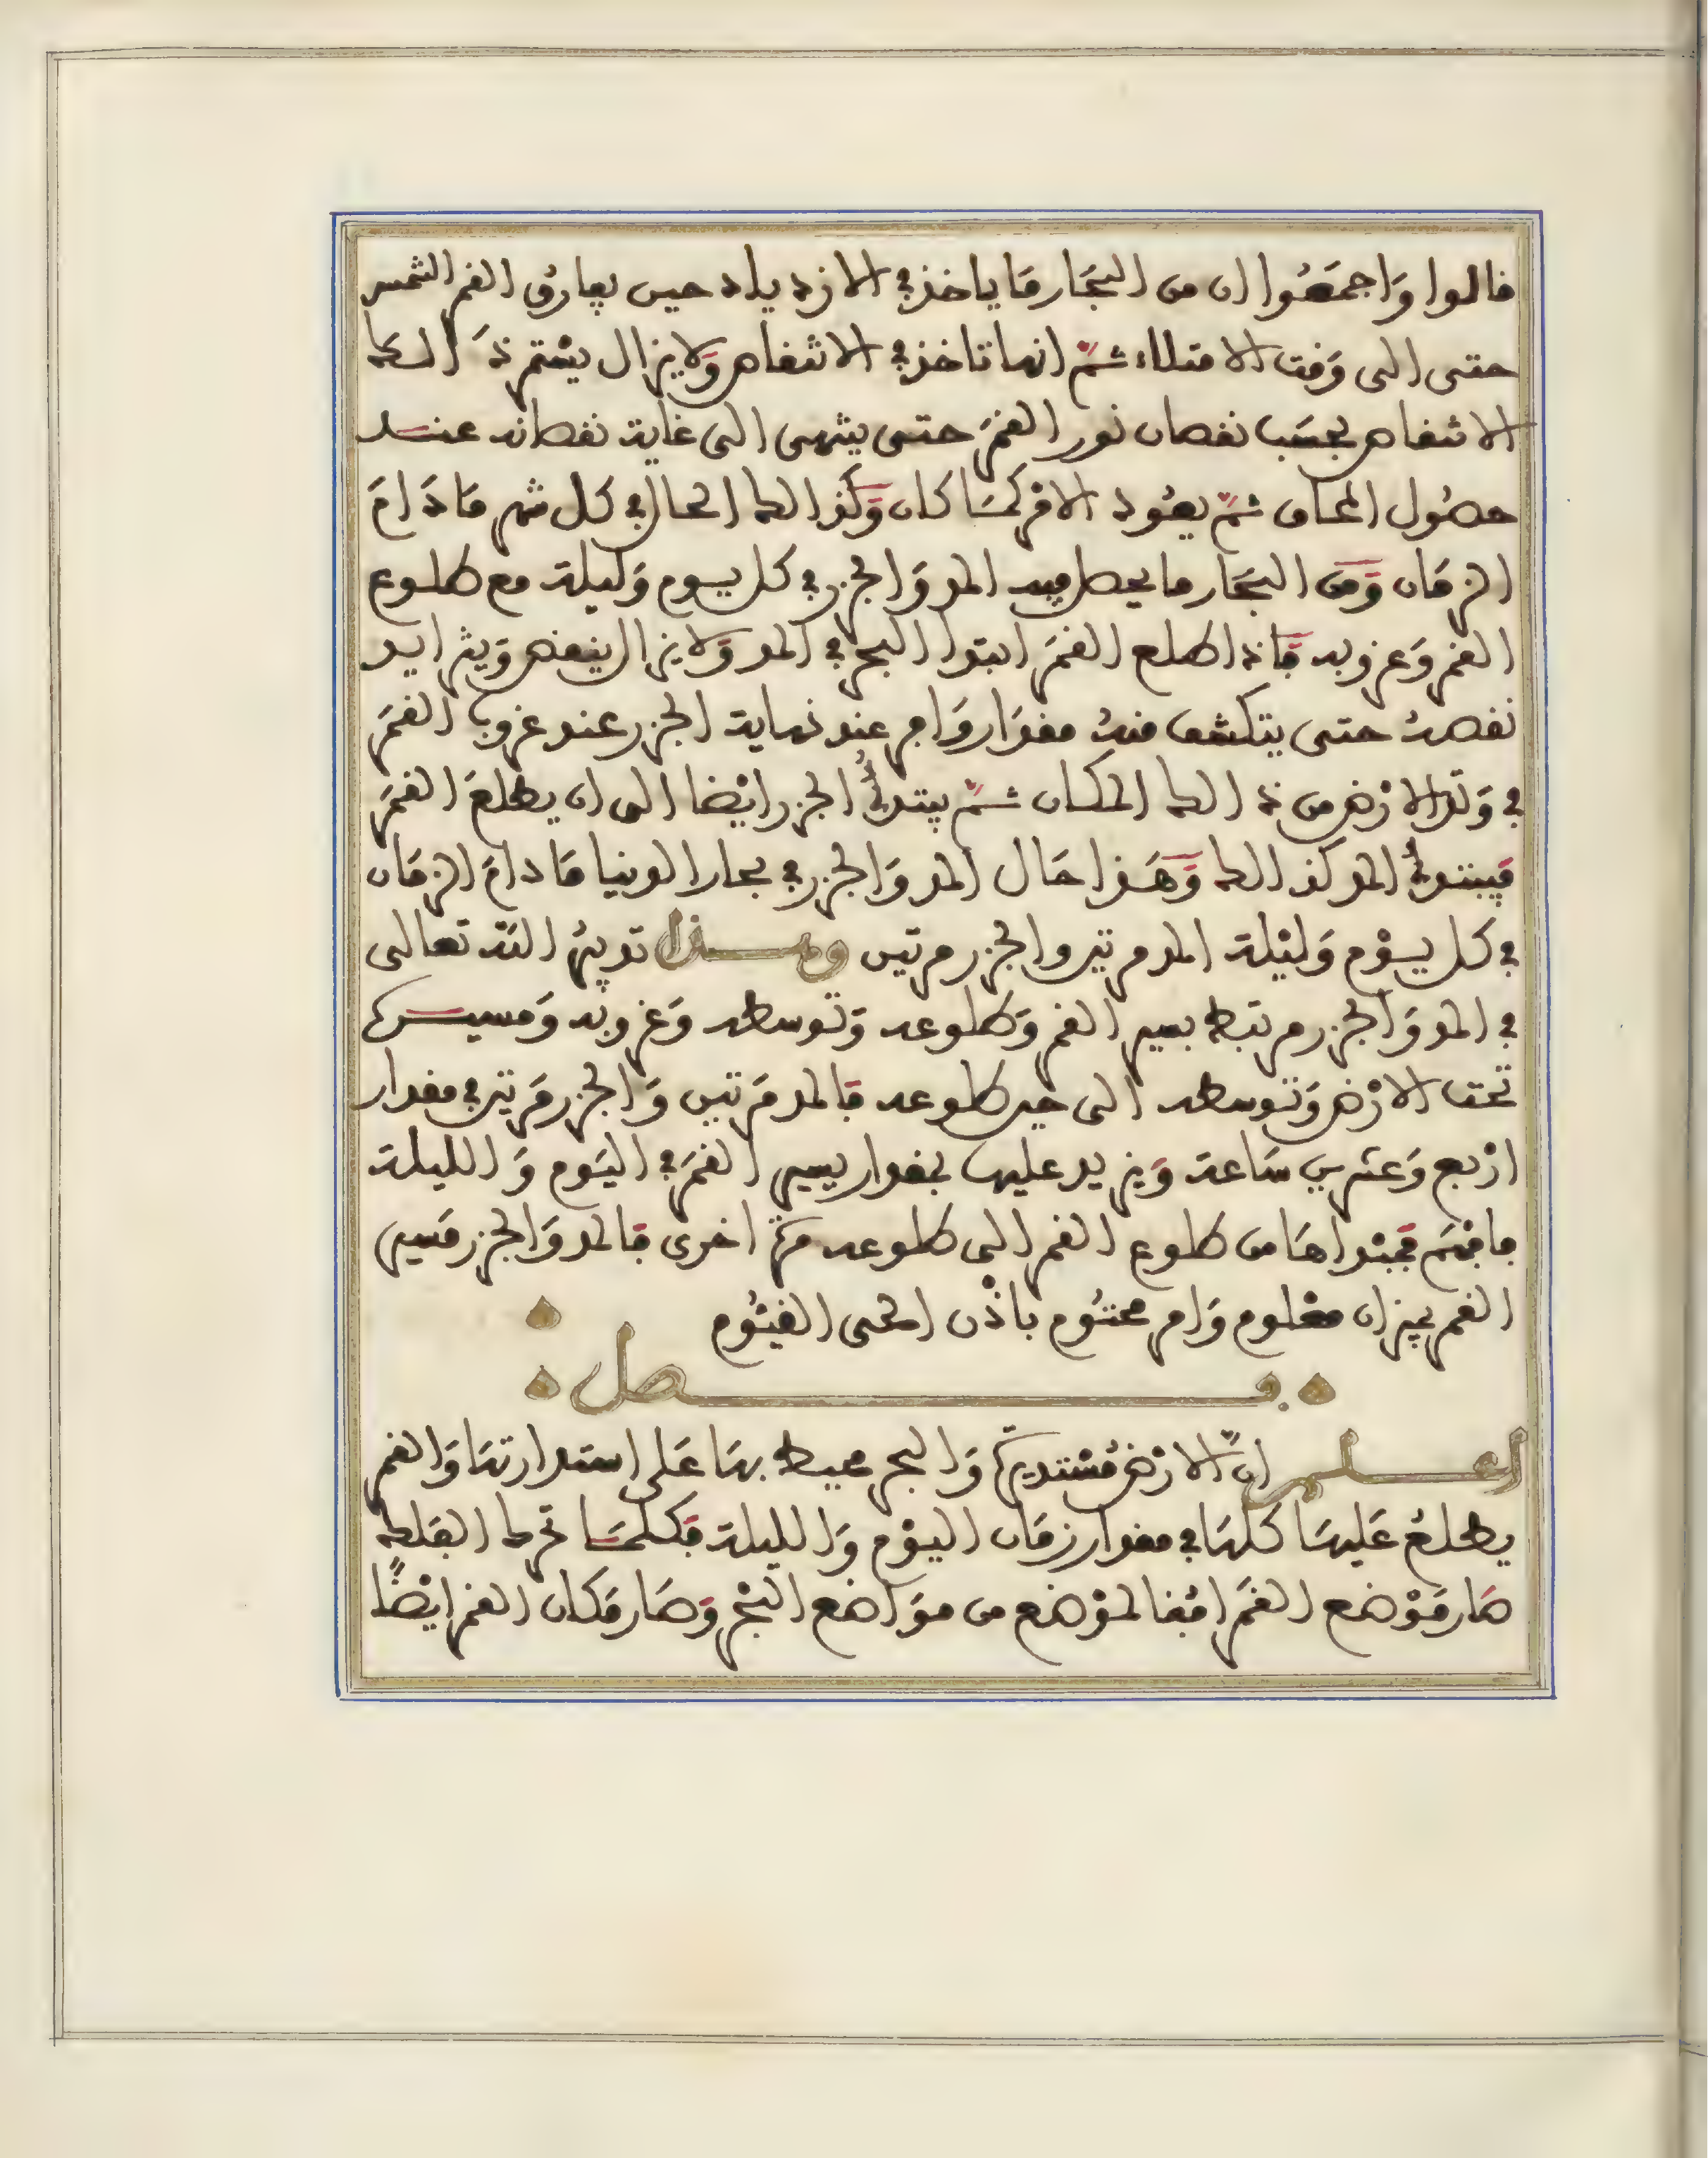 قالوا وَاجمَعُوا ان من البحَار مَا ياخذ في الازدياد حين يفارق القمر الشمس
حتى الى وَقت الامتلاء ثمّ انها تاخذ في الانتقاص وَلا يزال يستمر ذَالك
الانتقاص بحسَب نقصان نور القمَر حتى ينتهى الى غاية نقصانه عند
حصُول المحاق ثمّ يعُود الامر كمَا كان وَكَذالك الحال في كل شهر مَا دَامَ
الزمَان وَمن البحَار ما يحصل فيه المد وَالجزر في كل يوم وَليلة مع طلوع
القمر وَغروبه فَاذا طلع القمَر ابتدا البحر في المد وَلا يزال ينقص وَيتزايد
نقصهُ حتى يتكشف منهُ مقدَار وَافر عند نهاية الجزر عند غروب القمَر
في وَتد الارْض من ذالك المكان ثمّ يبتدئُ الجزر ايْضا الى ان يطلعَ القمَر
فيبتدئُ المد كذالك وَهَذا حَال المد وَالجزر في بحار الدنيا مَا دامَ الزمَان
في كل يوْم وَليْلة المد مرتين والجزر مرتين وهذا تدبيرُ اللّه تعالى
في المد وَالجزر مرتبط بسير القمر وَطلوعه وَتوسطه وَغروبه وَمسيره
تحت الارْض وَتوسطه الى حين طلوعه فَالمد مَرتين وَالجزر مَرتين في مقدار
ارْبع وَعشرين سَاعة وَيزيد عليها بمقدار يسير القمَر في اليَوم وَالليلة
فافهَم فمبْداهَا من طلوع القمر الى طلوعه مرّة اخرى فَالمد وَالجزر مَسير
القمر بميزان معْلوم وَامر محتُوم باذْن الحى القيُّوم
فصل
اعلم انّ الارْض مُسْتديرَة وَالبحر محيط بهَا عَلى استدارتهَا وَالقمر
يطلعُ عَليهَا كلهَا في مقدار زمَان اليوْم وَالليلة فكلمَا تحرك الفَلك
صَار مَوْضع القمَر افُقا لموْضع من موَاضع البحْر وَصَار مَكان القمر ايْضًا